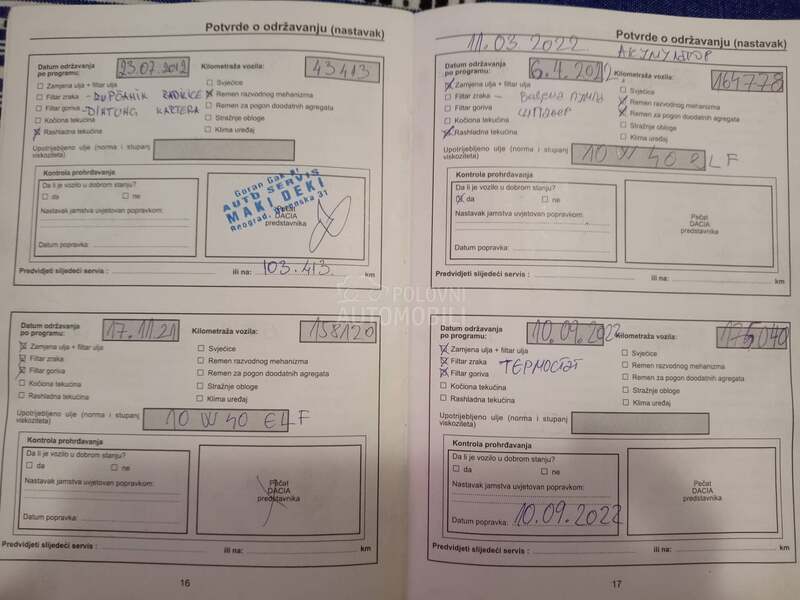 Potvrde o održavanju (nastavak)
Datum održavanja
po programu:
23.07.2012
Kilometraža vozila:
43413
Zamjena ulja + filtar ulja
Filtar zraka
Filtar goriva
Kočiona tekućina
Rashladna tekućina
Svjećice
Remen razvodnog mehanizma
Remen za pogon dodatnih agregata
Stražnje obloge
Klima uređaj
DIHTUNG KARTERA
Upotrijebljeno ulje (norma i stupanj
viskoziteta)
Kontrola prohrđavanja
Da li je vozilo u dobrom stanju?
da
ne
Nastavak jamstva uvjetovan popravkom:
Datum popravka:
Goran Gak
AUTO SERVIS
MAKI DEKI
Pečat
DACIA
predstavnika
Predvidjeti slijedeći servis :
ili na:
103.413
km
Datum održavanja
po programu:
17.11.21
Kilometraža vozila:
158120
Zamjena ulja + filtar ulja
Filtar zraka
Filtar goriva
Kočiona tekućina
Rashladna tekućina
Svjećice
Remen razvodnog mehanizma
Remen za pogon doodatnih agregata
Stražnje obloge
Klima uređaj
Upotrijebljeno ulje (norma i stupanj
viskoziteta)
10 W 40 ELF
Kontrola prohrđavanja
Da li je vozilo u dobrom stanju?
da
ne
Nastavak jamstva uvjetovan popravkom:
Datum popravka:
Pečat
DACIA
predstavnika
Predvidjeti slijedeći servis :
ili na:
km
16
Potvrde o održavanju (nastavak)
11.03.2022.
АКУМУЛАТОР
Datum održavanja
po programu:
6.4.2022
Kilometraža vozila:
164778
Zamjena ulja + filtar ulja
Filtar zraka
Filtar goriva
Kočiona tekućina
Rashladna tekućina
Svjećice
Remen razvodnog mehanizma
Remen za pogon doodatnih agregata
Stražnje obloge
Klima uređaj
ПУМПА
Upotrijebljeno ulje (norma i stupanj
viskoziteta)
10 W 40 ELF
Kontrola prohrđavanja
Da li je vozilo u dobrom stanju?
da
ne
Nastavak jamstva uvjetovan popravkom:
Datum popravka:
Pečat
DACIA
predstavnika
Predvidjeti slijedeći servis :
ili na:
km
Datum održavanja
po programu:
10.09.2022
Kilometraža vozila:
175040
Zamjena ulja + filtar ulja
Filtar zraka
Filtar goriva
Kočiona tekućina
Rashladna tekućina
ТЕРМОСТАТ
Svjećice
Remen razvodnog mehanizma
Remen za pogon doodatnih agregata
Stražnje obloge
Klima uređaj
Upotrijebljeno ulje (norma i stupanj
viskoziteta)
Kontrola prohrđavanja
Da li je vozilo u dobrom stanju?
da
ne
Nastavak jamstva uvjetovan popravkom:
Datum popravka:
10.09.2022
Pečat
DACIA
predstavnika
Predvidjeti slijedeći servis :
ili na:
km
17
POLOVNI
AUTOMOBILI